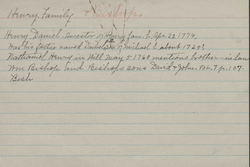 Henry Family
Henry, Daniel Ancestor of Henry fam. b. Apr. 28, 1774.
Was his father named Daniel, of Michael b. about 1729?
Nathaniel Henry in Will May 5 1768 mentions brother-in-law
Wm Bishop and Bishops sons David & John. Bk. 7 p. 107.